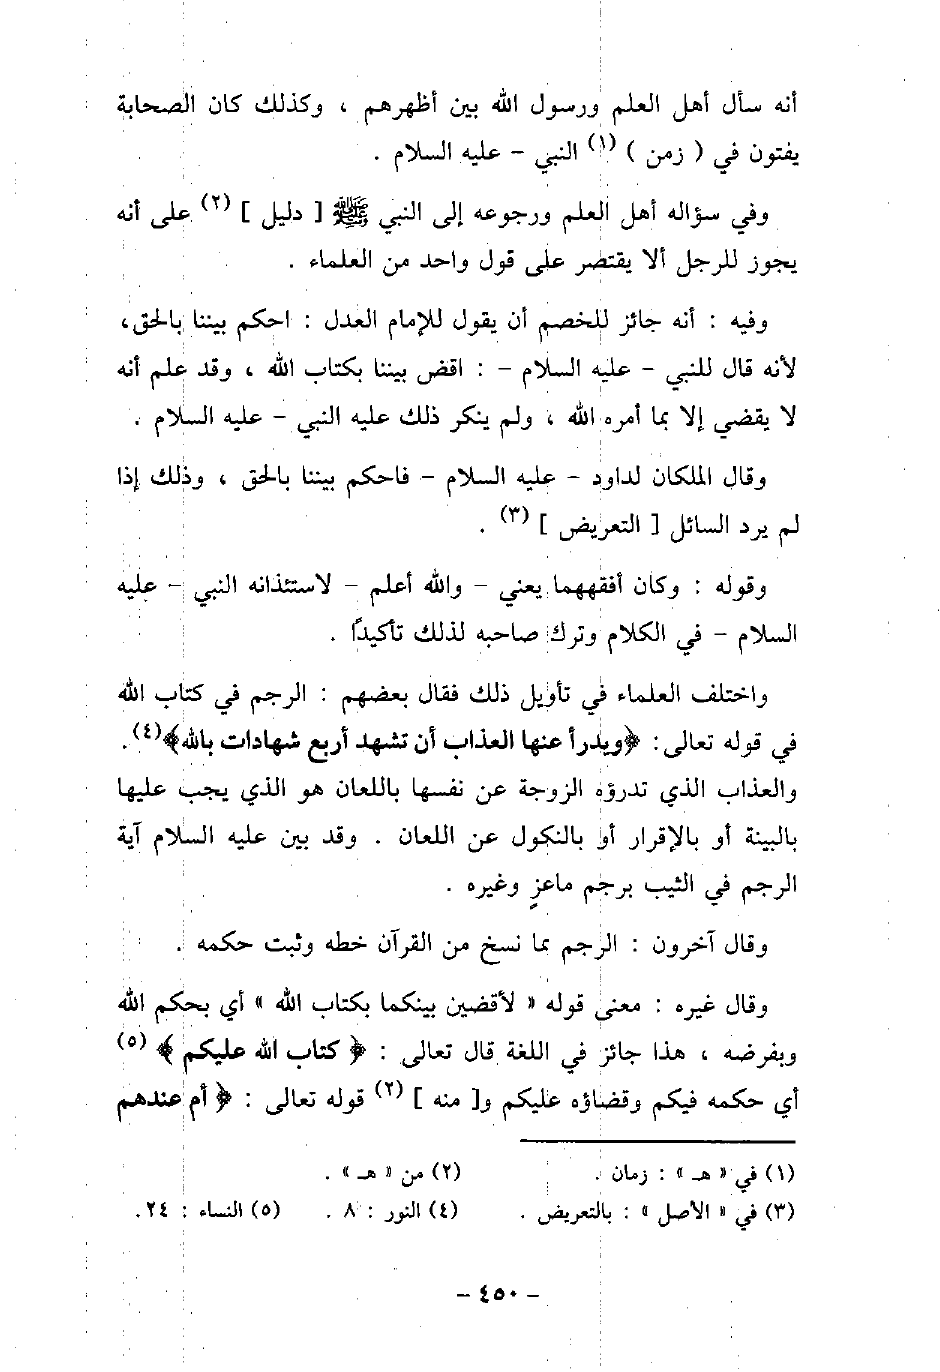 أنه سأل أهل العلم ورسول الله بين أظهرهم ، وكذلك كان الصحابة
يفتون في ( زمن ) (١) النبي - عليه السلام .
وفي سؤاله أهل العلم ورجوعه إلى النبي ﷺ [ دليل ] (٢) على أنه
يجوز للرجل ألا يقتصر على قول واحد من العلماء .
وفيه : أنه جائز للخصم أن يقول للإمام العدل : احكم بيننا بالحق،
لأنه قال للنبي - عليه السلام - : اقض بيننا بكتاب الله ، وقد علم أنه
لا يقضي إلا بما أمره الله ، ولم ينكر ذلك عليه النبي - عليه السلام .
وقال الملكان لداود - عليه السلام - فاحكم بيننا بالحق ، وذلك إذا
لم يرد السائل [ التعريض ] (٣) .
وقوله : وكان أفقههما يعني - والله أعلم - لاستئذانه النبي - عليه
السلام - في الكلام وترك صاحبه لذلك تأكيدًا .
واختلف العلماء في تأويل ذلك فقال بعضهم : الرجم في كتاب الله
في قوله تعالى: ﴿ويدرأ عنها العذاب أن تشهد أربع شهادات بالله﴾(٤).
والعذاب الذي تدرؤه الزوجة عن نفسها باللعان هو الذي يجب عليها
بالبينة أو بالإقرار أو بالنكول عن اللعان . وقد بين عليه السلام آية
الرجم في الثيب برجم ماعزٍ وغيره .
وقال آخرون : الرجم بما نسخ من القرآن خطه وثبت حكمه .
وقال غيره : معنى قوله « لأقضين بينكما بكتاب الله » أي بحكم الله
وبفرضه ، هذا جائز في اللغة قال تعالى : ﴿ كتاب الله عليكم ﴾ (٥)
أي حكمه فيكم وقضاؤه عليكم و[ منه ] (٢) قوله تعالى : ﴿ أم عندهم
(١) في « هـ » : زمان . (٢) من « هـ » .
(٣) في « الأصل » : بالتعريض . (٤) النور : ٨ . (٥) النساء : ٢٤ .
- ٤٥٠ -